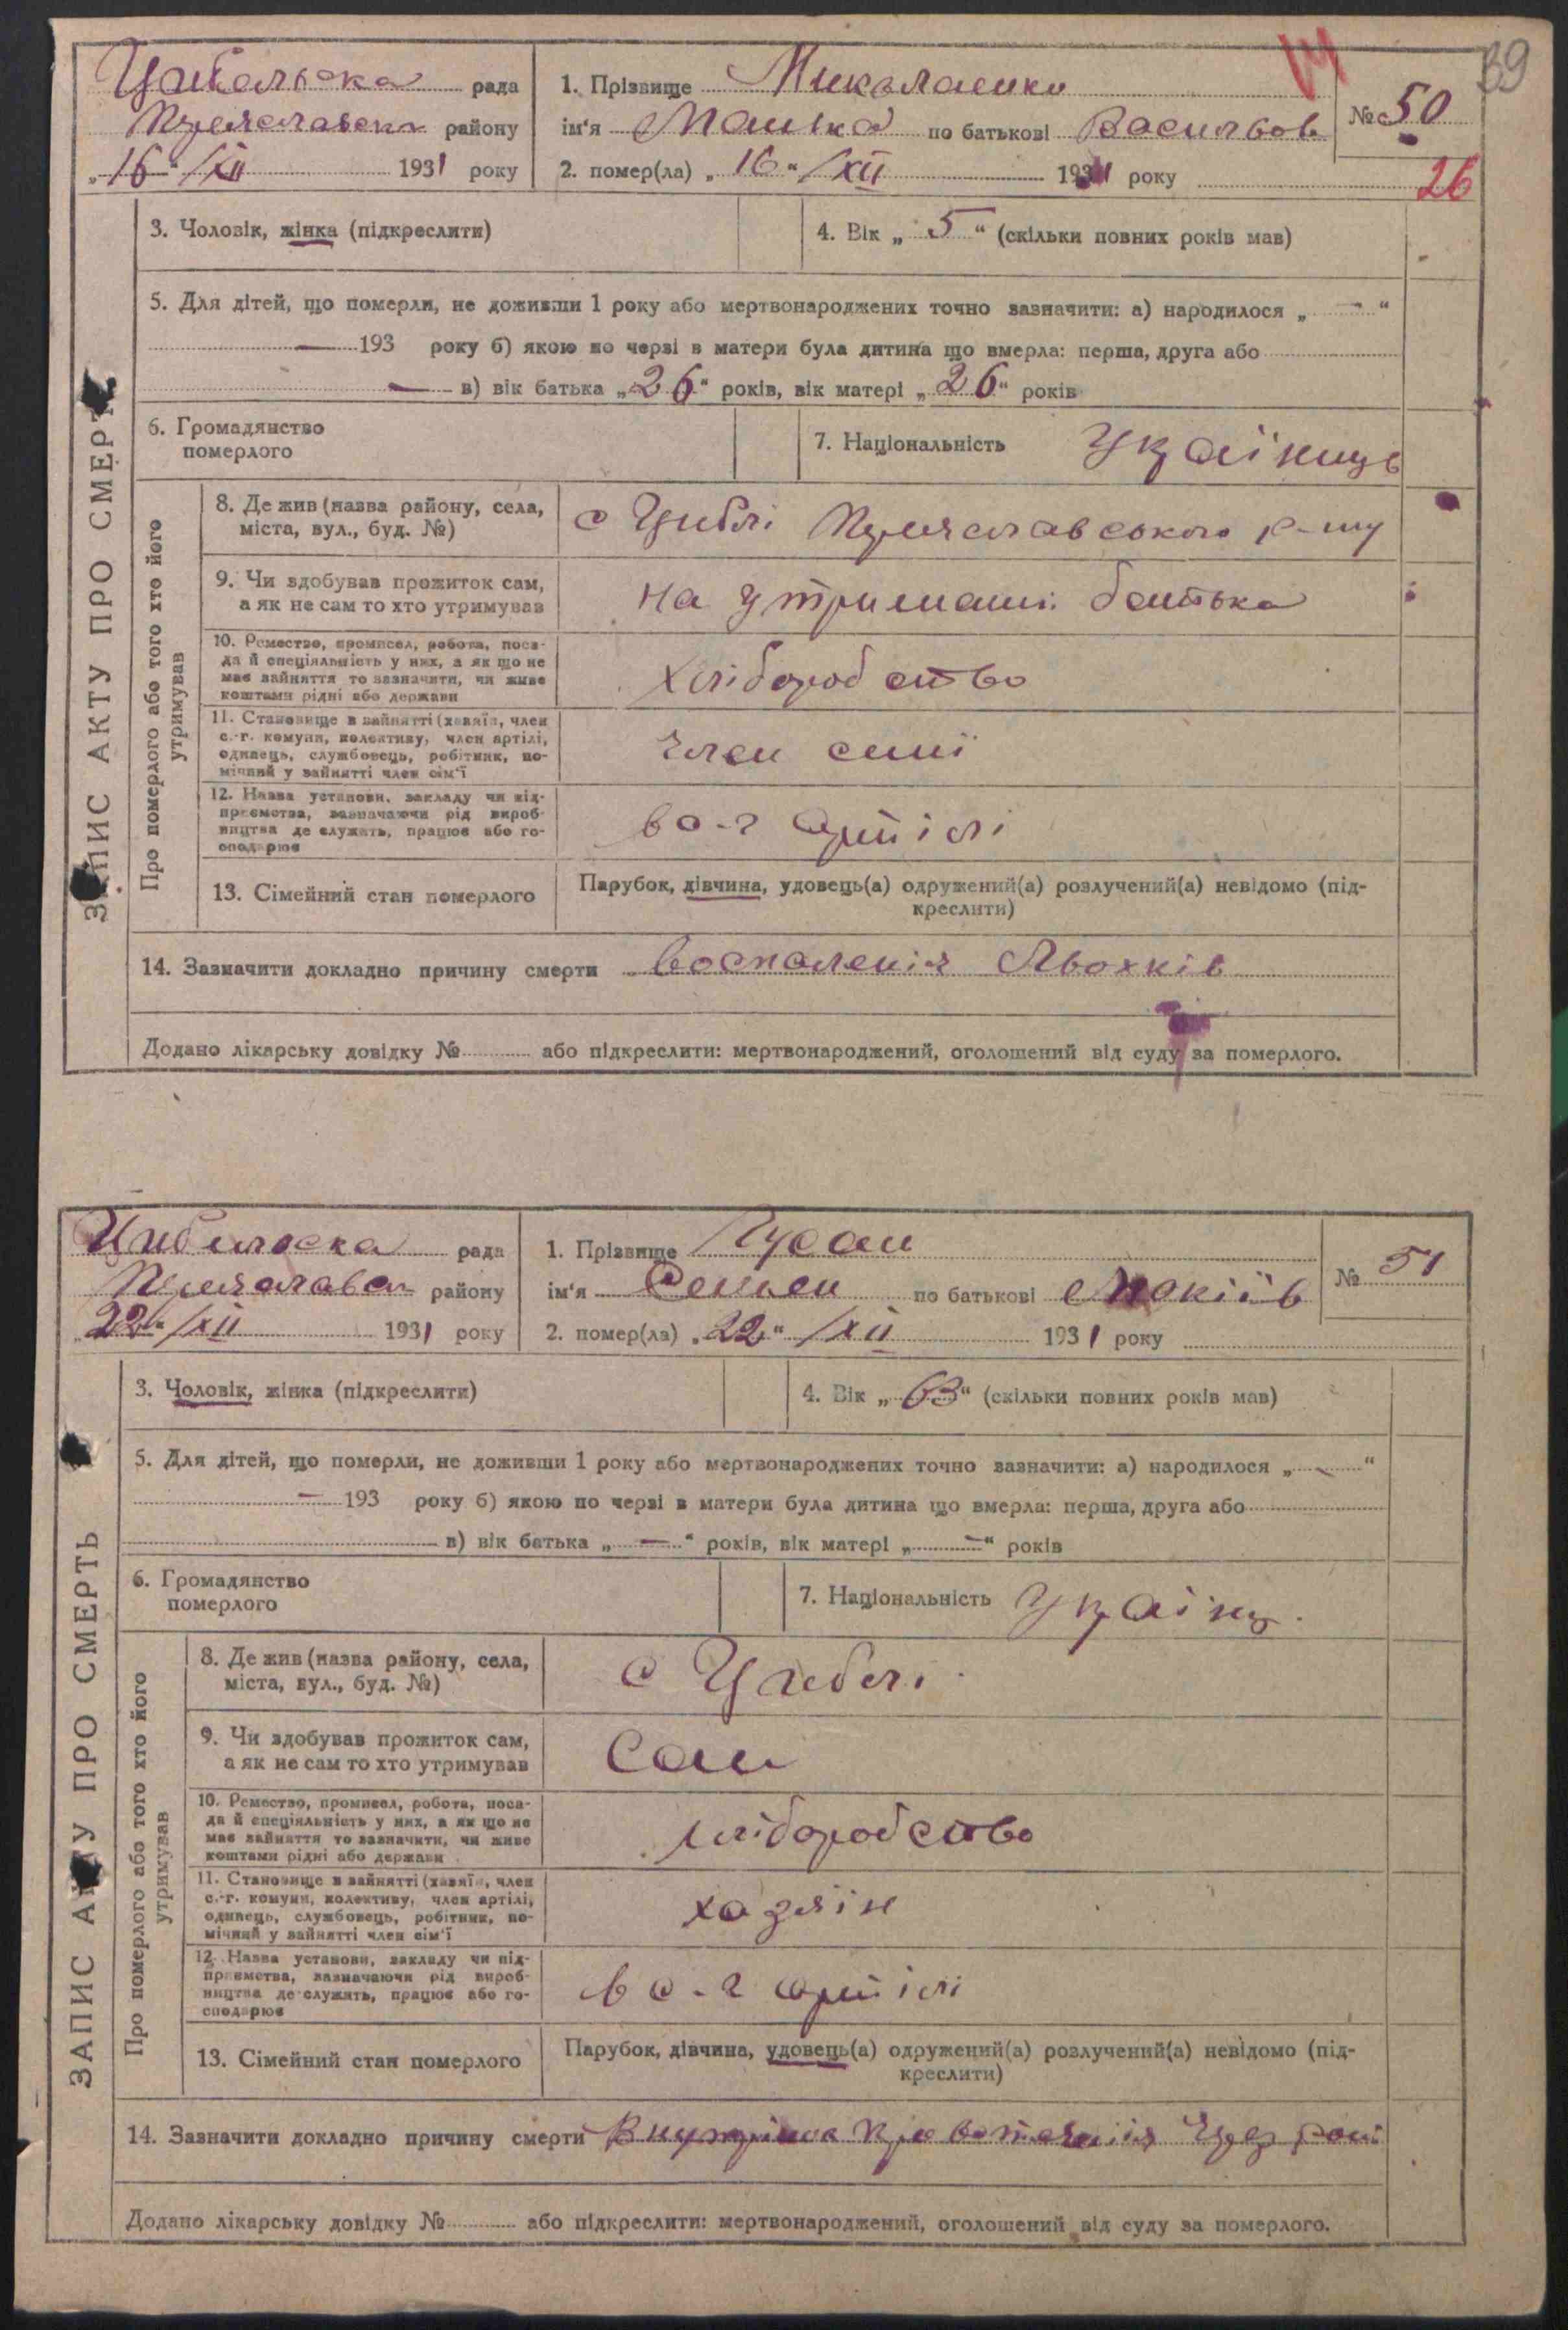 39
Цибельска рада
Переяславськ району
„16“/XII 1931 року
1. Прізвище Миколаенко
ім‘я Машка по батькові Васильов
2. помер(ла) „16“/XII 1931 року
№ 50
26
ЗАПИС АКТУ ПРО СМЕРТЬ
3. Чоловік, жінка (підкреслити)
4. Вік „5“ (скільки повних років мав)
5. Для дітей, що померли, не доживши 1 року або мертвонароджених точно зазначити: а) народилося „—“
— 193 року б) якою по черзі в матери була дитина що вмерла: перша, друга або
— в) вік батька „26“ років, вік матері „26“ років
6. Громадянство
померлого
7. Національність Українць
Про померлого або того хто його
утримував
8. Де жив (назва району, села,
міста, вул., буд. №)
с Циблі Переяславського р-ну
9. Чи здобував прожиток сам,
а як не сам то хто утримував
на утримані батька
10. Ремество, промисел, робота, поса-
да й спеціяльність у них, а як що не
має зайняття то зазначити, чи живе
коштами рідні або держави
хліборобство
11. Становище в зайнятті (хазяїн, член
с.-г. комуни, колективу, член артілі,
одинець, службовець, робітник, по-
мічний у зайнятті член сім‘ї
член семї
12. Назва установи, закладу чи під-
приємства, зазначаючи рід вироб-
ництва де служить, працює або го-
сподарює
в с-г артілі
13. Сімейний стан померлого
Парубок, дівчина, удовець(а) одружений(а) розлучений(а) невідомо (під-
креслити)
14. Зазначити докладно причину смерти воспаленія Льохків
Додано лікарську довідку № або підкреслити: мертвонароджений, оголошений від суду за померлого.
Цибельска рада
Переяславськ району
„22“/XII 1931 року
1. Прізвище Гусан
ім‘я Семен по батькові Мокіїв
2. помер(ла) „22“/XII 1931 року
№ 51
ЗАПИС АКТУ ПРО СМЕРТЬ
3. Чоловік, жінка (підкреслити)
4. Вік „63“ (скільки повних років мав)
5. Для дітей, що померли, не доживши 1 року або мертвонароджених точно зазначити: а) народилося „—“
— 193 року б) якою по черзі в матери була дитина що вмерла: перша, друга або
в) вік батька „—“ років, вік матері „—“ років
6. Громадянство
померлого
7. Національність Українц.
Про померлого або того хто його
утримував
8. Де жив (назва району, села,
міста, вул., буд. №)
с Циблі
9. Чи здобував прожиток сам,
а як не сам то хто утримував
Сам
10. Ремество, промисел, робота, поса-
да й спеціяльність у них, а як що не
має зайняття то зазначити, чи живе
коштами рідні або держави
хліборобство
11. Становище в зайнятті (хазяїн, член
с.-г. комуни, колективу, член артілі,
одинець, службовець, робітник, по-
мічний у зайнятті член сім‘ї
хазяін
12. Назва установи, закладу чи під-
приємства, зазначаючи рід вироб-
ництва де служить, працює або го-
сподарює
в с-г артілі
13. Сімейний стан померлого
Парубок, дівчина, удовець(а) одружений(а) розлучений(а) невідомо (під-
креслити)
14. Зазначити докладно причину смерти Внутрішнє кровотеченія Через рот
Додано лікарську довідку № або підкреслити: мертвонароджений, оголошений від суду за померлого.